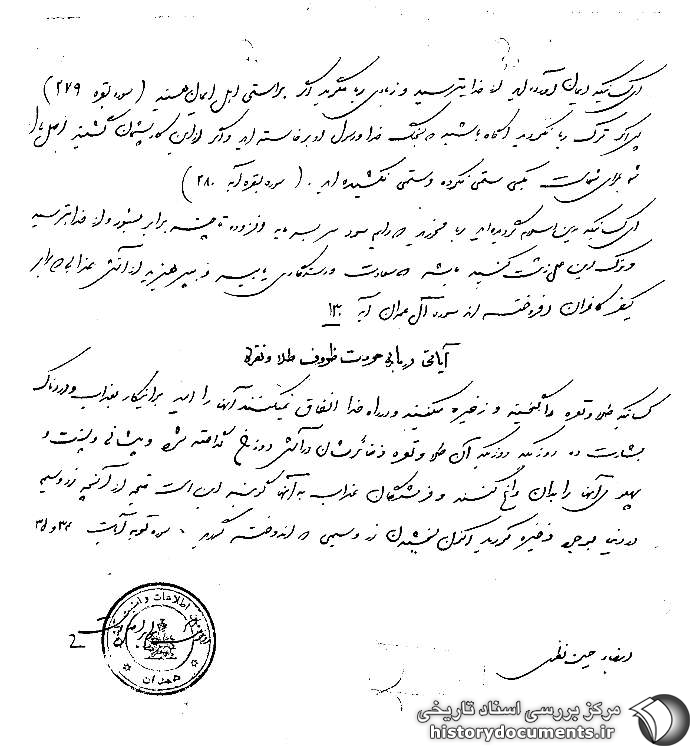 ای کسانیکه ایمان آورده اید از خدا بترسید و زیادی ربا مگیرید اگر براستی اهل ایمان هستید (سوره بقره ۲۷۹)
پس اگر ترک ربا نکردید آگاه باشید که بجنگ خدا و رسول او برخاسته اید و اگر از این کار پشیمان گشتید اصل مال
شما برای شماست بکسی ستمی نکرده و ستمی نکشیده اید . (سوره بقره آیه ۲۸۰)
ای کسانیکه بدین اسلام گرویده اید ربا مخورید که دایم سود بر سرمایه افزوده تا چند برابر میشود و از خدا بترسید
و ترک این عمل زشت کنید باشد که سعادت و رستگاری یابید و بپرهیزید از آتش عذابی که برای
کیفر کافران افروخته اند سوره آل عمران آیه ۱۳۰
آیاتی درباره حرمت ظروف طلا و نقره
کسانیکه طلا و نقره را گنجینه و ذخیره میکنند و در راه خدا انفاق نمیکنند آنها را بعذاب دردناک
بشارت ده روزیکه آن طلا و نقره و ذخائرشان در آتش دوزخ گداخته شود و پیشانی و پشت و
پهلوی آنها را بدان داغ کنند و فرشتگان عذاب به آنها گویند این است نتیجه آنچه از زر و سیم
ذخیره کردید اکنون بچشید زر و سیمی که اندوخته کردید . سوره توبه آیات ۳۴ و ۳۵
اطلاعات و امنیت
همدان
حسین
مرکز بررسی اسناد تاریخی
historydocuments.ir